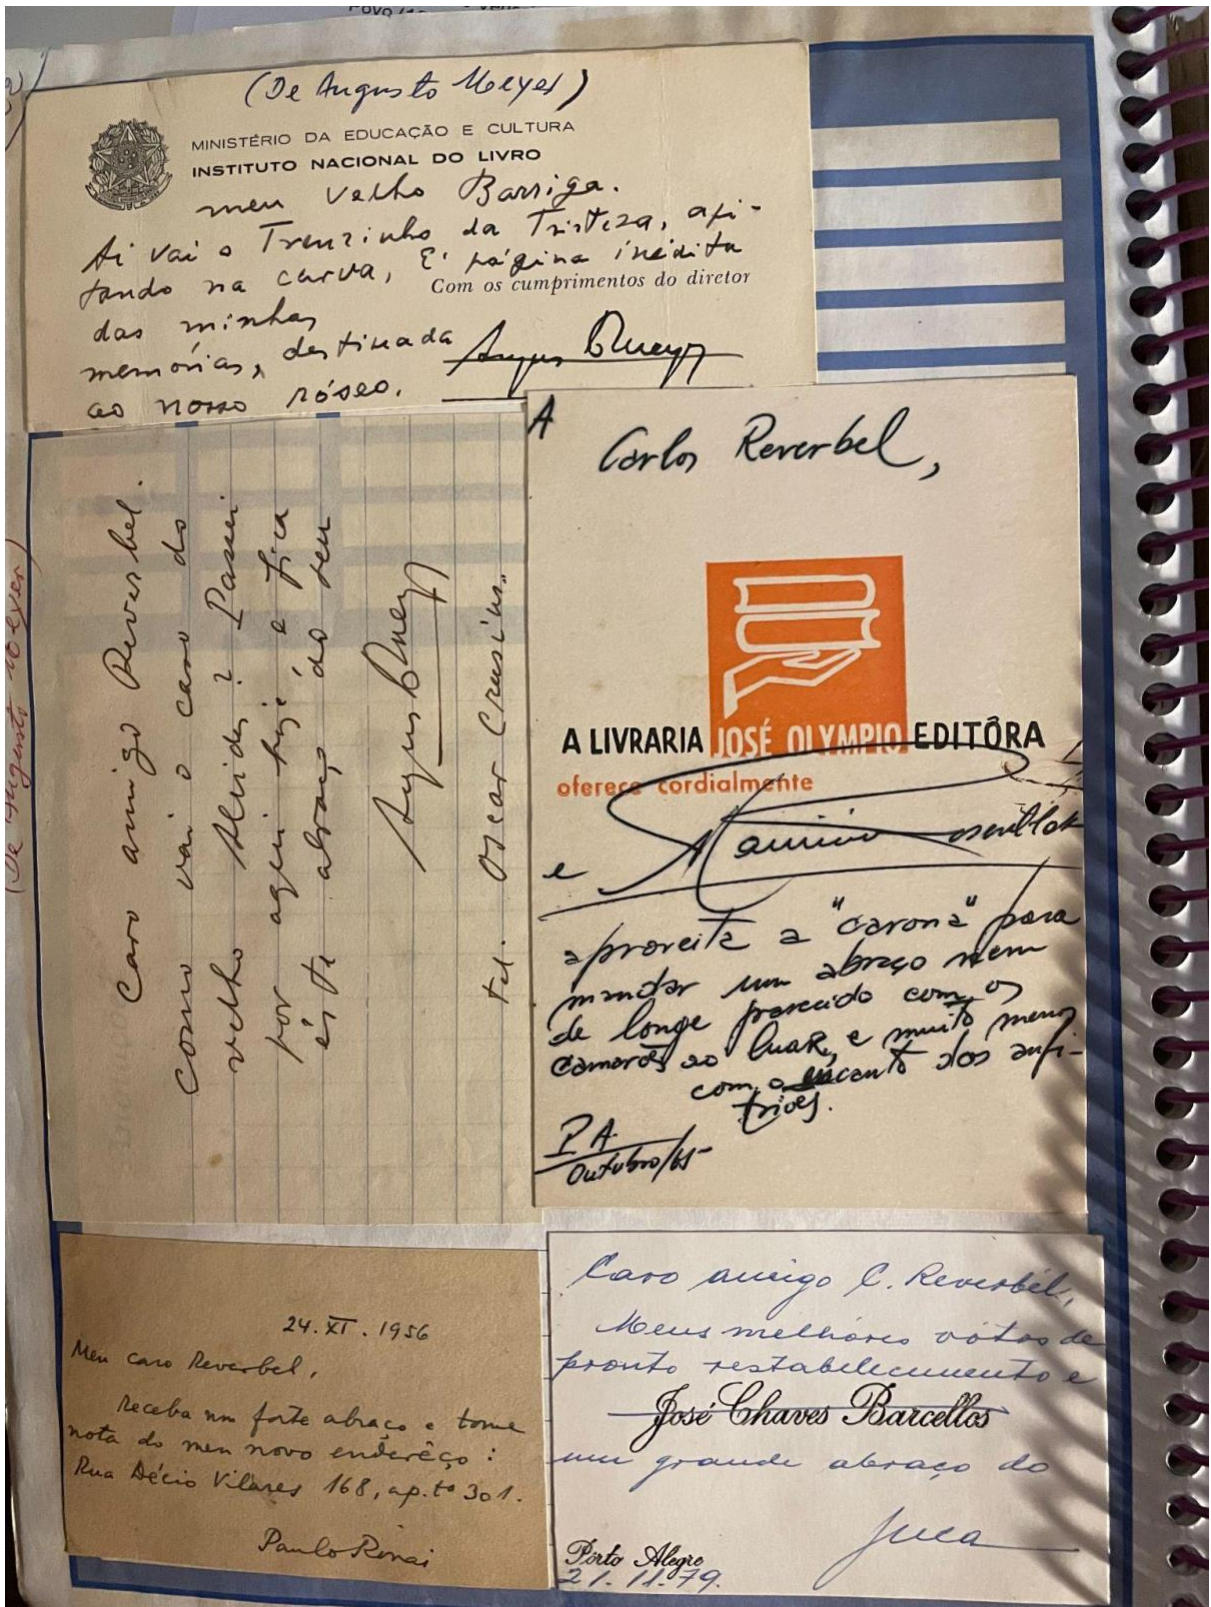 (De Augusto Meyer)
MINISTÉRIO DA EDUCAÇÃO E CULTURA
INSTITUTO NACIONAL DO LIVRO
meu velho Barriga.
Aí vai o Trenzinho da Tristeza, api-
tando na curva, É página inédita
Com os cumprimentos do diretor
das minhas
memórias, destinada
ao nosso róseo.
Augusto Meyer
(De Augusto Meyer)
Caro amigo Reverbel.
Como vai o caso do
velho Alcides? Passei
por aqui hoje e fica
êste abraço do seu
Augusto Meyer
Tel. Oscar Crusius.
A
Carlos Reverbel,
A LIVRARIA JOSÉ OLYMPIO EDITÔRA
oferece cordialmente
e Maurício Rosenblatt
aproveita a "carona" para
mandar um abraço nem
de longe parecido com os
camarões ao luar, e muito menos
com o encanto dos anfi-
triões.
P.A.
Outubro/65
24.XI.1956
Meu caro Reverbel,
Receba um forte abraço e tome
nota do meu novo enderêço:
Rua Décio Vilares 168, ap.to 301.
Paulo Rónai
Caro amigo C. Reverbél,
Meus melhores vótos de
pronto restabelecimento e
José Chaves Barcellos
um grande abraço do
Juca
Porto Alegre
21.11.79.